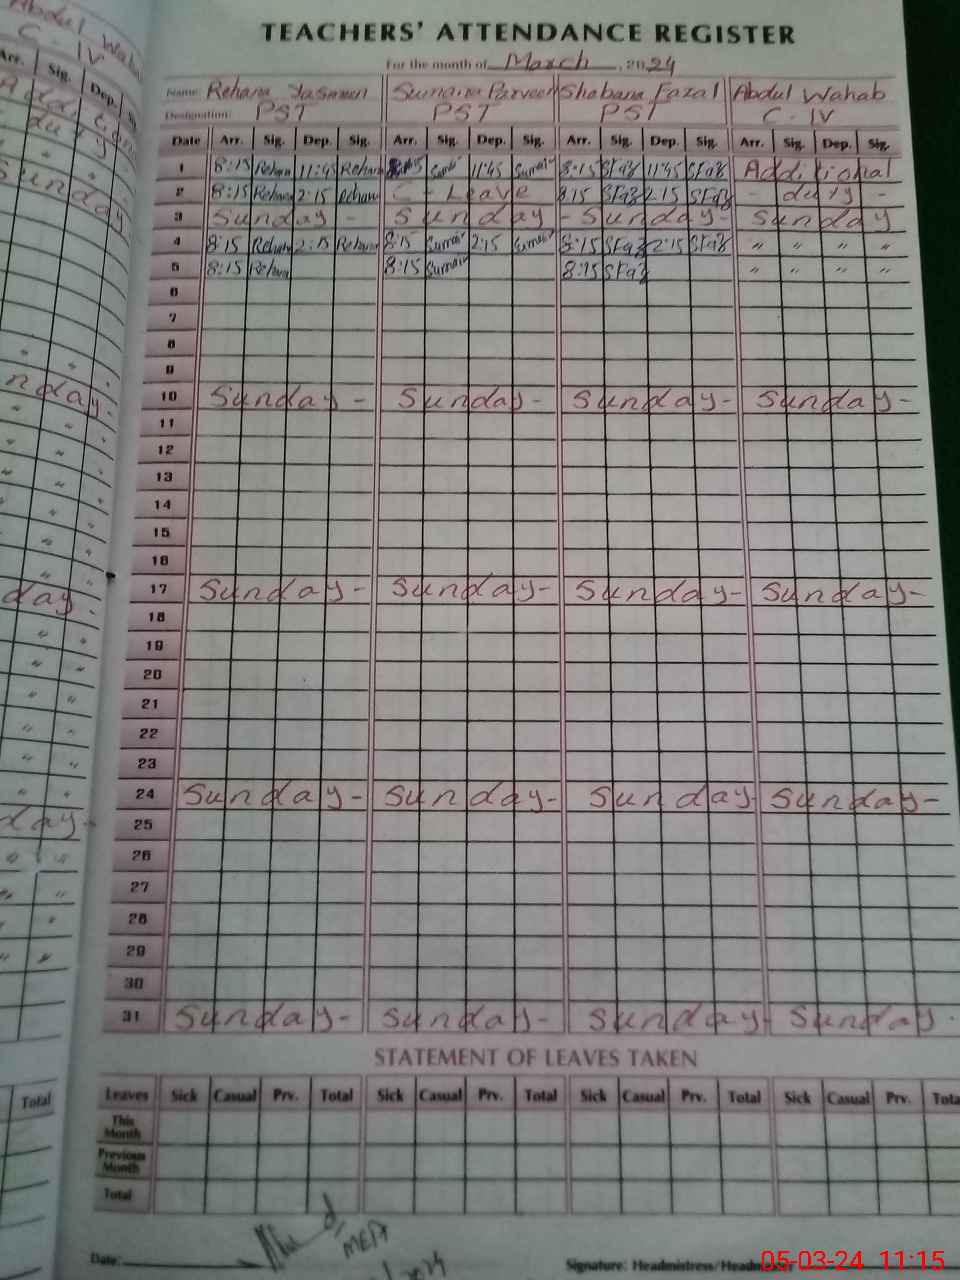 TEACHERS' ATTENDANCE REGISTER
For the month of March, 2024
Name: Rehana Jasmeen Sumaira Parveen Shabana Fazal Abdul Wahab
Designation: PST PST PST C-IV
Date Arr. Sig. Dep. Sig. Arr. Sig. Dep. Sig. Arr. Sig. Dep. Sig. Arr. Sig. Dep. Sig.
1 8:15 Rehana 11:45 Rehana 11:45 8:15 SFaz 11:45 SFaz Additional
2 8:15 Rehana 2:15 Rehana C - Leave 8:15 SFaz 2:15 SFaz - duty -
3 Sunday - Sunday - Sunday - Sunday
4 8:15 Rehana 2:15 Rehana 8:15 Sumair 2:15 Sumair 8:15 SFaz 2:15 SFaz " " " "
5 8:15 Rehana 8:15 Sumair 8:15 SFaz " " " "
6
7
8
9
10 Sunday - Sunday - Sunday - Sunday -
11
12
13
14
15
16
17 Sunday - Sunday - Sunday - Sunday -
18
19
20
21
22
23
24 Sunday - Sunday - Sunday Sunday -
25
26
27
28
29
30
31 Sunday - Sunday - Sunday - Sunday -
STATEMENT OF LEAVES TAKEN
Leaves Sick Casual Prv. Total Sick Casual Prv. Total Sick Casual Prv. Total Sick Casual Prv. Tota
This Month
Previous Month
Total
Date:
MEA
Signature: Headmistress/Headmaster
05-03-24 11:15
Abdul Wahab
C - IV
Arr. Sig. Dep.
Sunday
Total